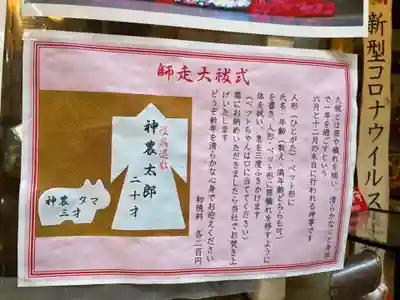 師走大祓式
大祓とは罪や穢れを祓い、清らかな心と身体
で一年を過ごすという
六月と十二月の末日に行われる神事です
人形（ひとがた）、ペット形に
氏名・年齢（数え・満年齢どちらも可）
を書き、人形・ペット形に罪穢れを移すように
体を拭い、息を三度ふきかけます
（ペットちゃんは口に当ててください）
箱にお納めいただきましたら当社でお焚き上
げいたします
どうぞ新年を清らかな心身でお迎えください
初穂料　各二百円
神農太郎
二十才
神農 タマ
三才
新型コロナウイルス